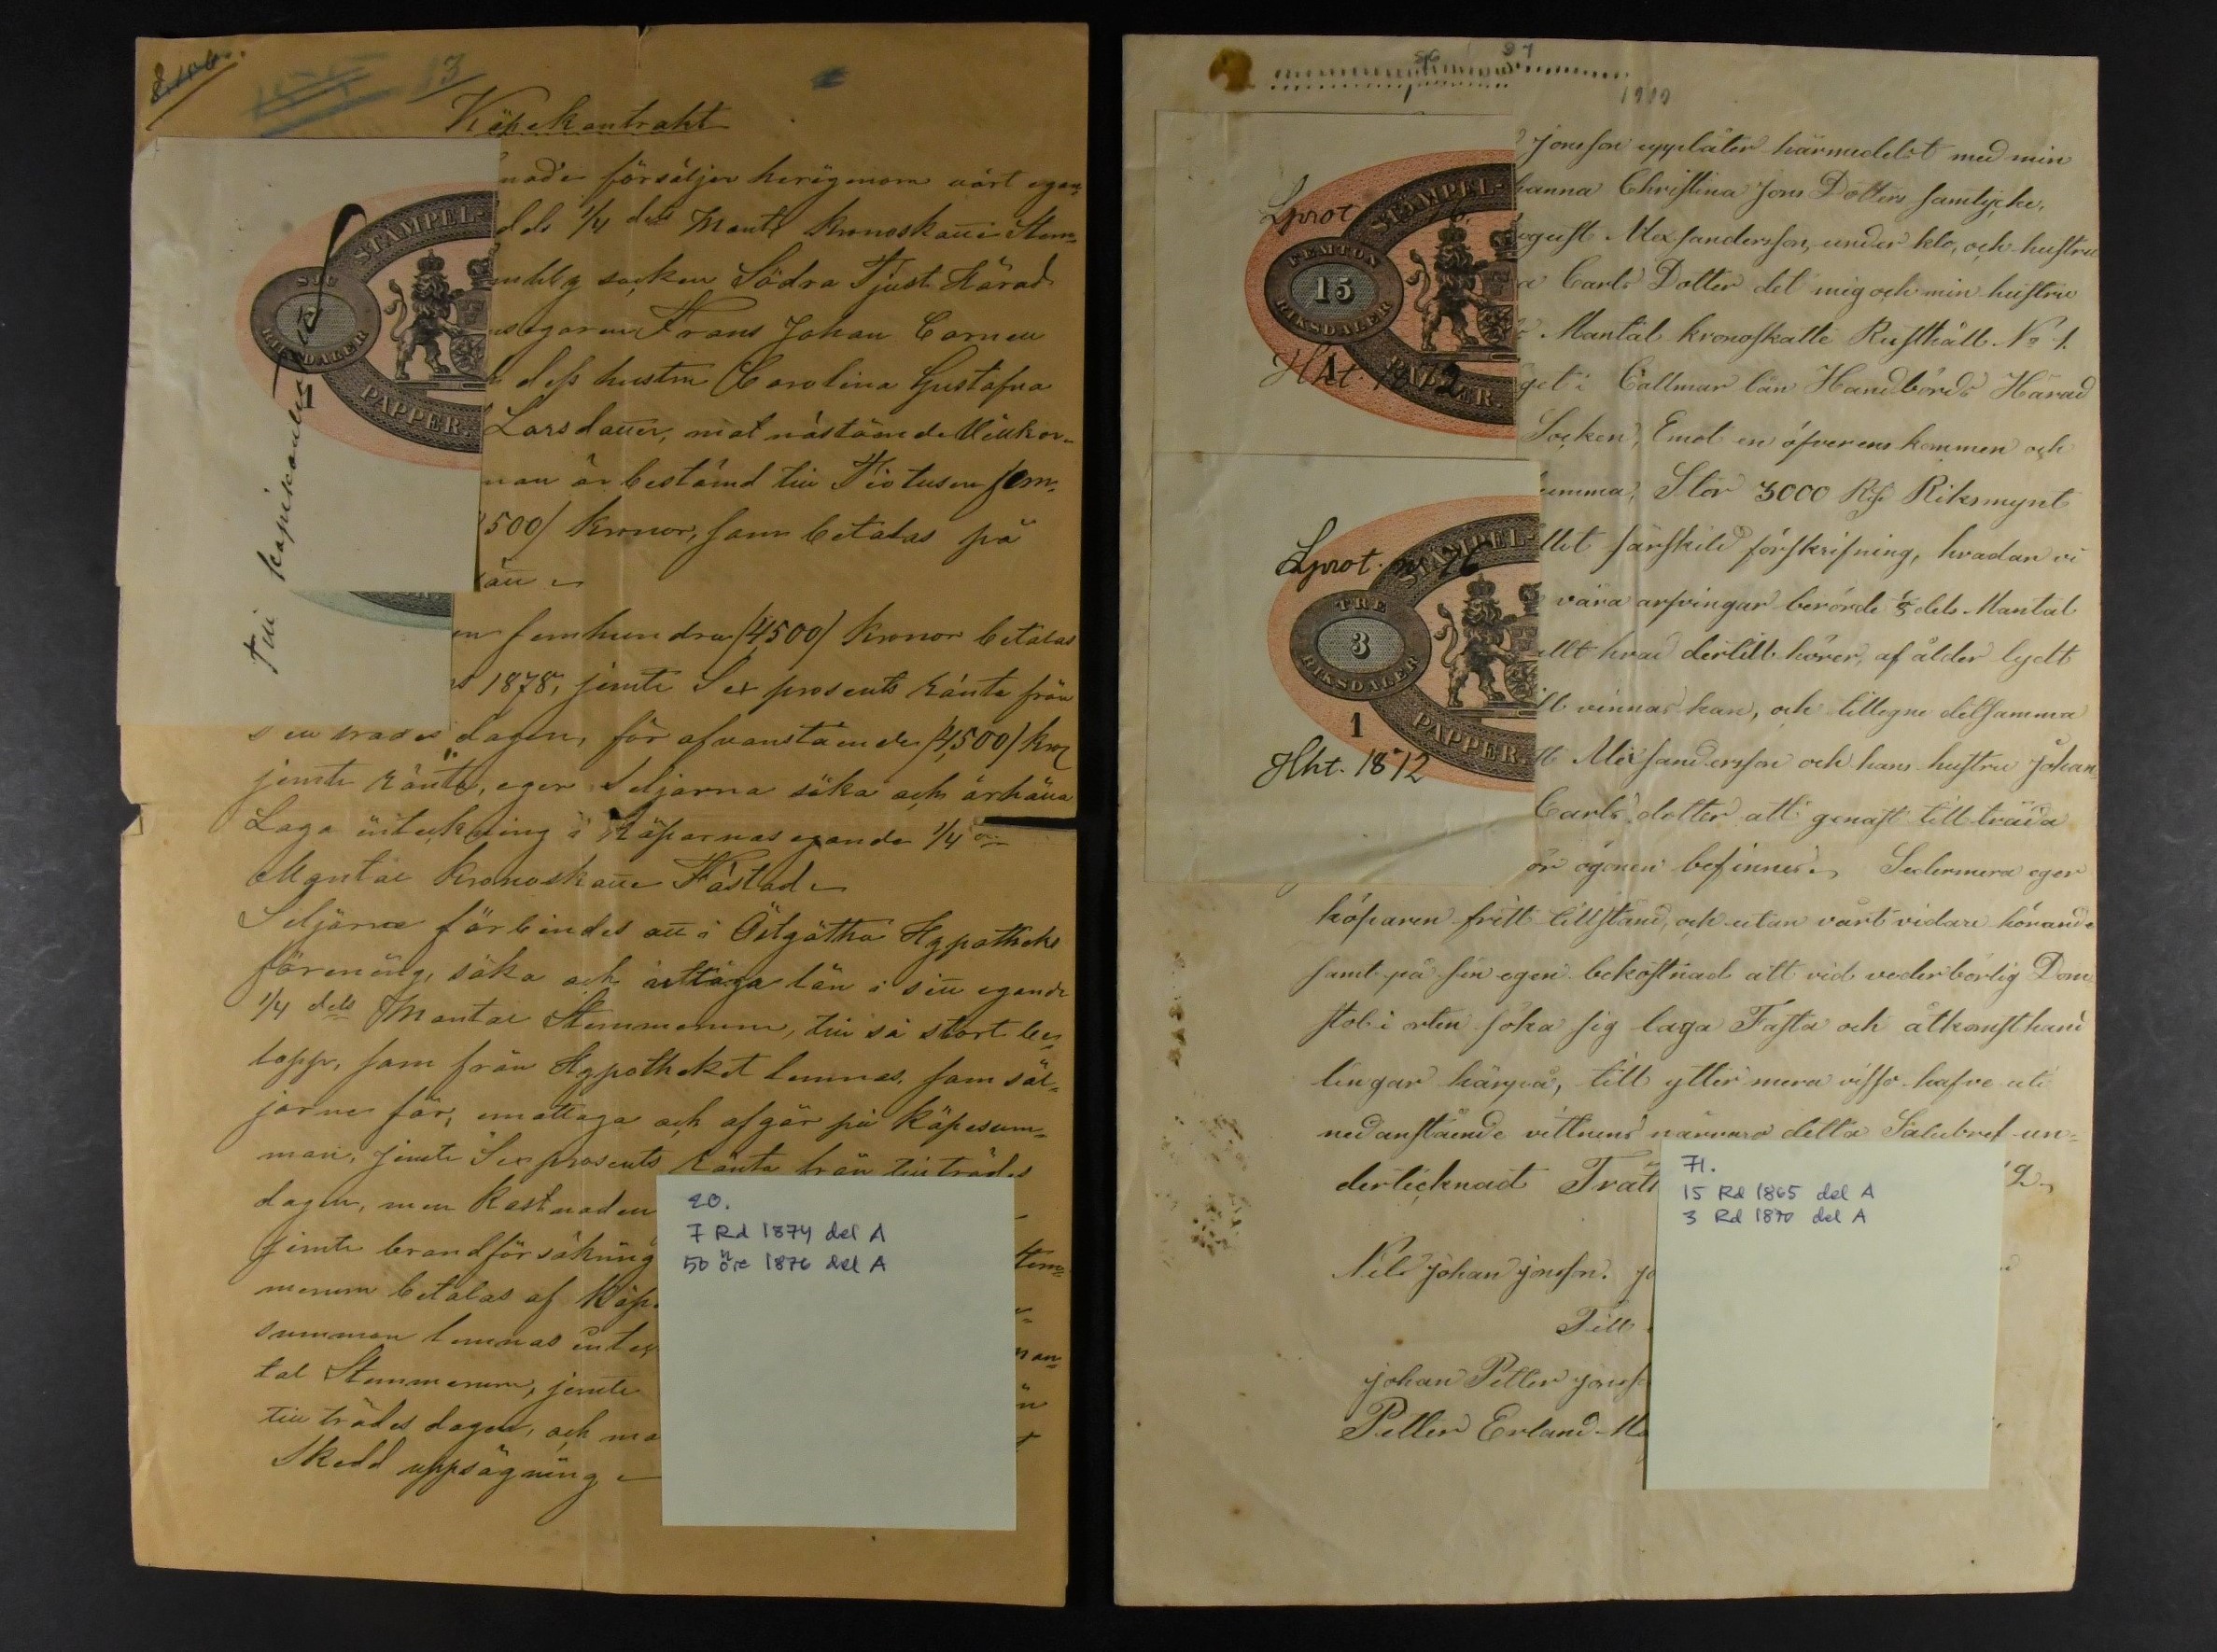 13
Köpekontrakt
försäljer herigenom vårt egan,
dels 1/4 dels Mantl Kronoskatte Stem-
socken Södra Tjust Härad
Frans Johan Carneu
dess hustru Carolina Gustafva
Larsdatter, mot nästående Villkor.
är bestämd till Tiotusen fem-
500/ Kronor, som betalas på
femhundra /4,500/ Kronor betalas
1878, jemte Sex prosents ränta från
dagen, för ofvanstående /4,500/ Kror
jemte ränta, eger Seljarna söka och ärhålla
Laga inteckning i Köparnas egande 1/4
Mantal Kronoskatte Fåstad
Seljarne förbindes att i Östgötha Hypotheks
förening, söka och uttaga lån i sitt egande
1/4 dels Mantal Stemmenum, till så stort be-
lopp, som från Hypotheket lemnas, som säl-
jarne får, emottaga och afgår på Köpesum-
man, jemte Sex prosents ränta från tillträdes
dagen, men Kostnaden
jemte brandförsäkring
menum betalas af Köp
summan lemnas
tal Stemmenum, jemte
tillträdes dagen, och
Skedd uppsägning
STÄMPEL-
SJU
RIKSDALER
1
PAPPER.
Till köpekontrakt
20.
7 Rd 1874 del A
50 öre 1876 del A
Jonsson upplåter härmedelst med min
hanna Christina Jons Dotters samtycke,
ogust Alexsandersson, under klo, och hustru
a Carls Dotter det mig och min hustru
Mantal kronoskatte Rusthåll No 1.
get i Callmar län Handbörds Härad
Socken, Emot en öfverenskommen och
umma, Stor 3000 Rd Riksmynt
llet särskild förskrifning, hvadan vi
våra arfvingar berörde 1/8 dels Mantal
allt hvad dertill hörer, af ålder lydt
ll vinnas kan, och tillegne detsamma
st Alexsandersson och hans hustru Johan
Carls dotter att genast tillträda
ör ögonen befinnes. Sedermera eger
köparen fritt tillstånd, och utan vårt vidare hörande
samt på sin egen bekostnad att vid vederbörlig Dom
stol i orten söka sig laga Fasta och åtkomsthand
lingar härpå, till yttermera visso hafve vi
nedanstående vittnens närvaro detta Salubref un-
dertecknad
Nils Johan Jonsson.
Till
Johan Petter Jons
Petter Erland
STÄMPEL-
FEMTON
15
RIKSDALER
1
PAPPER
Lprot
Hht.
STÄMPEL-
TRE
3
RIKSDALER
1
PAPPER.
Lprot.
Hht. 1872
71.
15 Rd 1865 del A
3 Rd 1870 del A